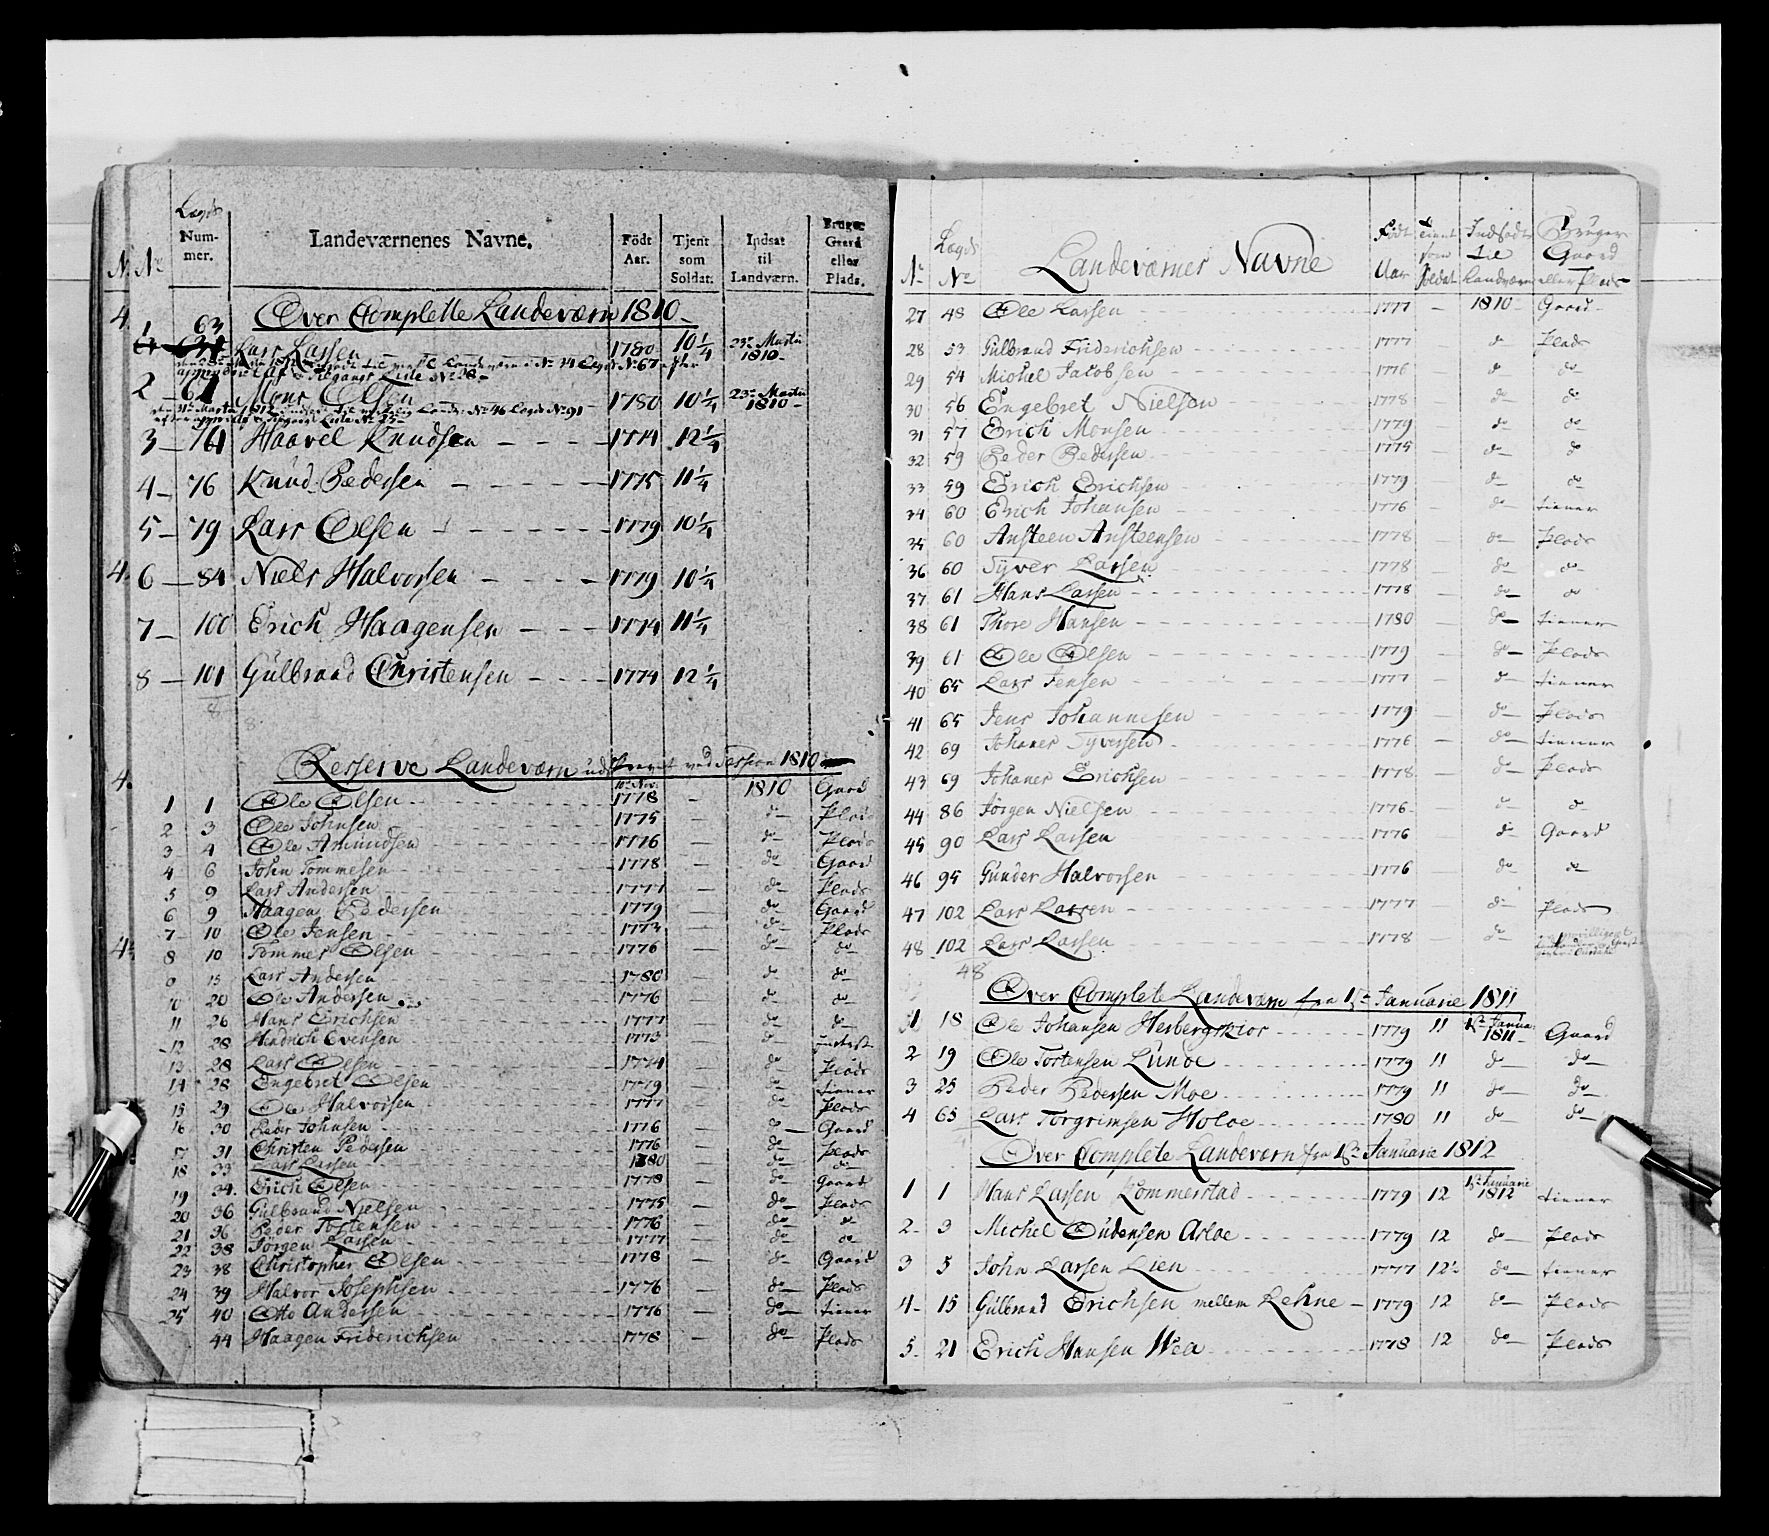 Lægds
N. No. Num-mer. Landeværnenes Navne. Födt Aar. Tjent som Soldat. Indsat til Landværn. Bruger Gaard eller Plads.
4. Over Complette Landeværn 1810
1 63 Lars Larsen 1780 10 1/4 23de Martii 1810
2 61 Mons Olsen 1780 10 1/4 23de Martii 1810
3 Haavel Knudsen 1774 12 1/4
4 76 Knud Pedersen 1775 11 1/4
5 79 Lars Olsen 1779 10 1/4
4. 6 84 Niels Halvorsen 1779 10 1/4
7 100 Erich Haagensen 1774 11 1/4
8 101 Gulbrand Christensen 1774 12 1/4
8 8
4. Reserve Landeværn udskrevet ved Session 1810
1 1 Ole Olsen 1778 — 1810 Gaard
2 3 Ole Johnsen 1775 — do Plads
3 4 Ole Amundsen 1776 — do Plads
4 6 John Tommesen 1778 — do Gaard
5 9 Lars Andersen 1777 — do Plads
6 9 Haagen Pedersen 1779 — do Gaard
7 10 Ole Jensen 1773 — do Plads
4. 8 10 Tommes Olsen 1776 — do do
9 15 Lars Andersen 1780 — do do
10 20 Ole Andersen 1776 — do do
11 26 Hans Erichsen 1777 — do do
12 28 Hendrich Evensen 1773 — do
13 28 Lars Olsen 1774 — do Plads
14 28 Engebret Olsen 1779 — do tiener
15 29 Ole Halvorsen 1777 — do Plads
16 30 Peder Johnsen 1776 — do Gaard
17 31 Christen Pedersen 1776 — do Plads
18 33 Lars Larsen 1780 — do do
19 34 Erich Olsen 1778 — do Gaard
20 36 Gulbrand Nielsen 1775 — do Plads
21 36 Peder Tostensen 1776 — do do
22 38 Jörgen Larsen 1777 — do do
23 38 Christopher Olsen 1778 — do Gaard
24 39 Halvor Josephsen 1776 — do Plads
25 40 Otto Andersen 1776 — do tiener
44 Haagen Friderichsen 1778 — do Plads
No. Lægds No. Landeværnes Navne Födt Aar tient som Soldat Indsadt til Landværn Bruger Gaard eller Plads
27 48 Ole Larsen 1777 — 1810 Gaard
28 53 Gulbrand Friderichsen 1777 do Plads
29 54 Michel Jacobsen 1776 do do
30 56 Engebret Nielsen 1778 do do
31 57 Erich Monsen 1779 do do
32 59 Peder Pedersen 1775 do do
33 59 Erich Erichsen 1779 do do
34 60 Erich Johansen 1776 do tiener
35 60 Ansteen Ansteensen 1778 do Plads
36 60 Syver Larsen 1778 do do
37 61 Hans Larsen 1778 do do
38 61 Thore Hansen 1780 do tiener
39 61 Ole Olsen 1779 do Plads
40 65 Lars Jensen 1777 do tiener
41 65 Jens Johannesen 1779 do Plads
42 69 Johanes Syversen 1776 do tiener
43 69 Johanes Erichsen 1778 do Plads
44 86 Jörgen Nielsen 1776 do do
45 90 Lars Larsen 1776 do Gaard
46 95 Gunder Halvorsen 1776 do do
47 102 Lars Larsen 1777 do Plads
48 102 Lars Larsen 1778 do
48
Over Complete Landeværn fra 1ste Januarie 1811
1 18 Ole Johansen Herbergskior 1779 11 1ste Janua: 1811 Gaard
2 19 Ole Tostensen Lunde 1779 11 do do
3 25 Peder Pedersen Moe 1779 11 do do
4 65 Lars Torgrimsen Holoe 1780 11 do do
Over Complete Landeværn fra 1ste Januarie 1812
1 1 Hans Larsen Kommerstad 1779 12 1ste Januarie 1812 tiener
2 3 Michel Gudensen Asloe 1779 12 do Plads
3 5 John Larsen Lien 1777 12 1/2 do tiener
4 15 Gulbrand Erichsen mellem Lehne 1779 12 do Plads
5 21 Erich Hansen Wea 1778 12 do Plads